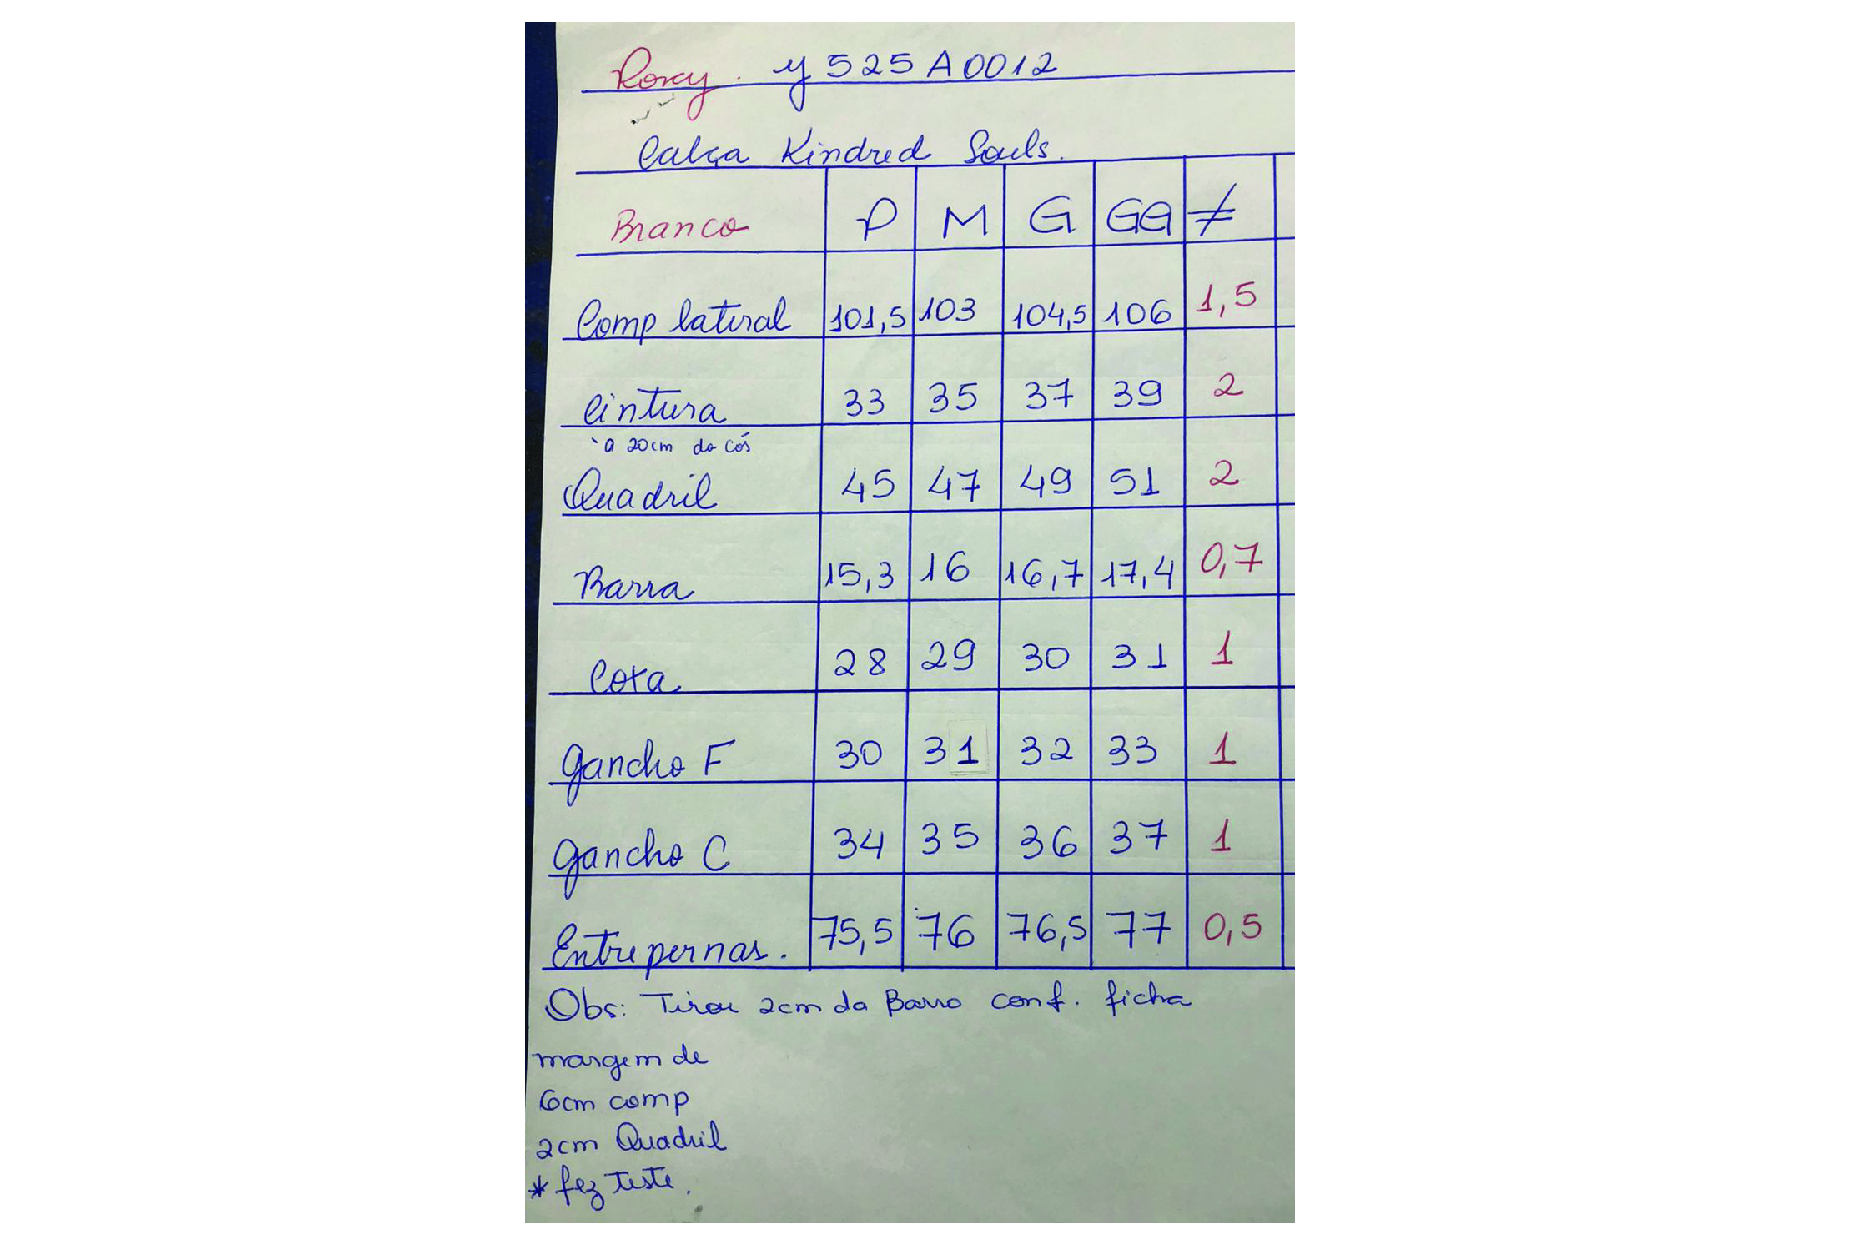 Roxy. Y525A0012
Calça Kindred Souls.
Branco P M G GG ≠
Comp lateral 101,5 103 104,5 106 1,5
Cintura 33 35 37 39 2
a 20cm do cós
Quadril 45 47 49 51 2
Barra 15,3 16 16,7 17,4 0,7
Coxa 28 29 30 31 1
Gancho F 30 31 32 33 1
Gancho C 34 35 36 37 1
Entrepernas. 75,5 76 76,5 77 0,5
Obs: Tirou 2cm da Barra conf. ficha
margem de
6cm comp
2cm Quadril
* fez teste.